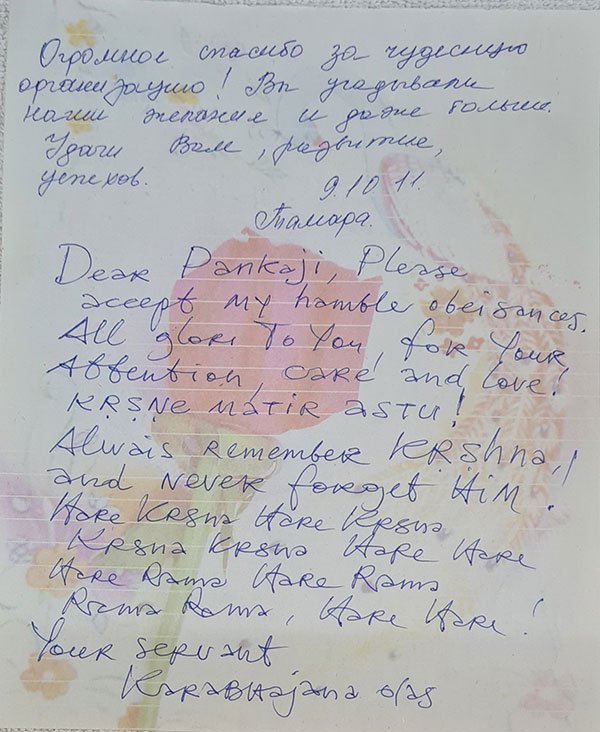 Огромное спасибо за чудесную
организацию! Вы угадывали
наши желания и даже больше.
Удачи Вам, развитие,
успехов.
9.10 11.
Тамара.
Dear Pankaji, Please
accept my hamble obeisances.
All glori To You, for Your
Attention, care and love!
KRSNE MATIR ASTU!
Alwais remember KRShna,!
and never forget HiM!
Hare Krsna Hare Krsna
Krsna Krsna Hare Hare
Hare Rama Hare Rama
Rama Rama, Hare Hare!
Your servant
KaraBHajana das